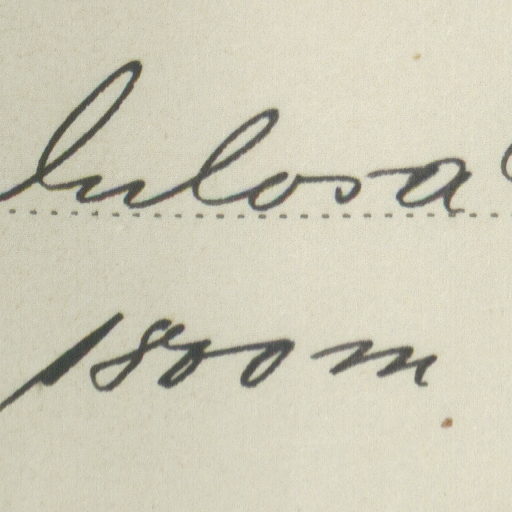 lulosa
1800 m